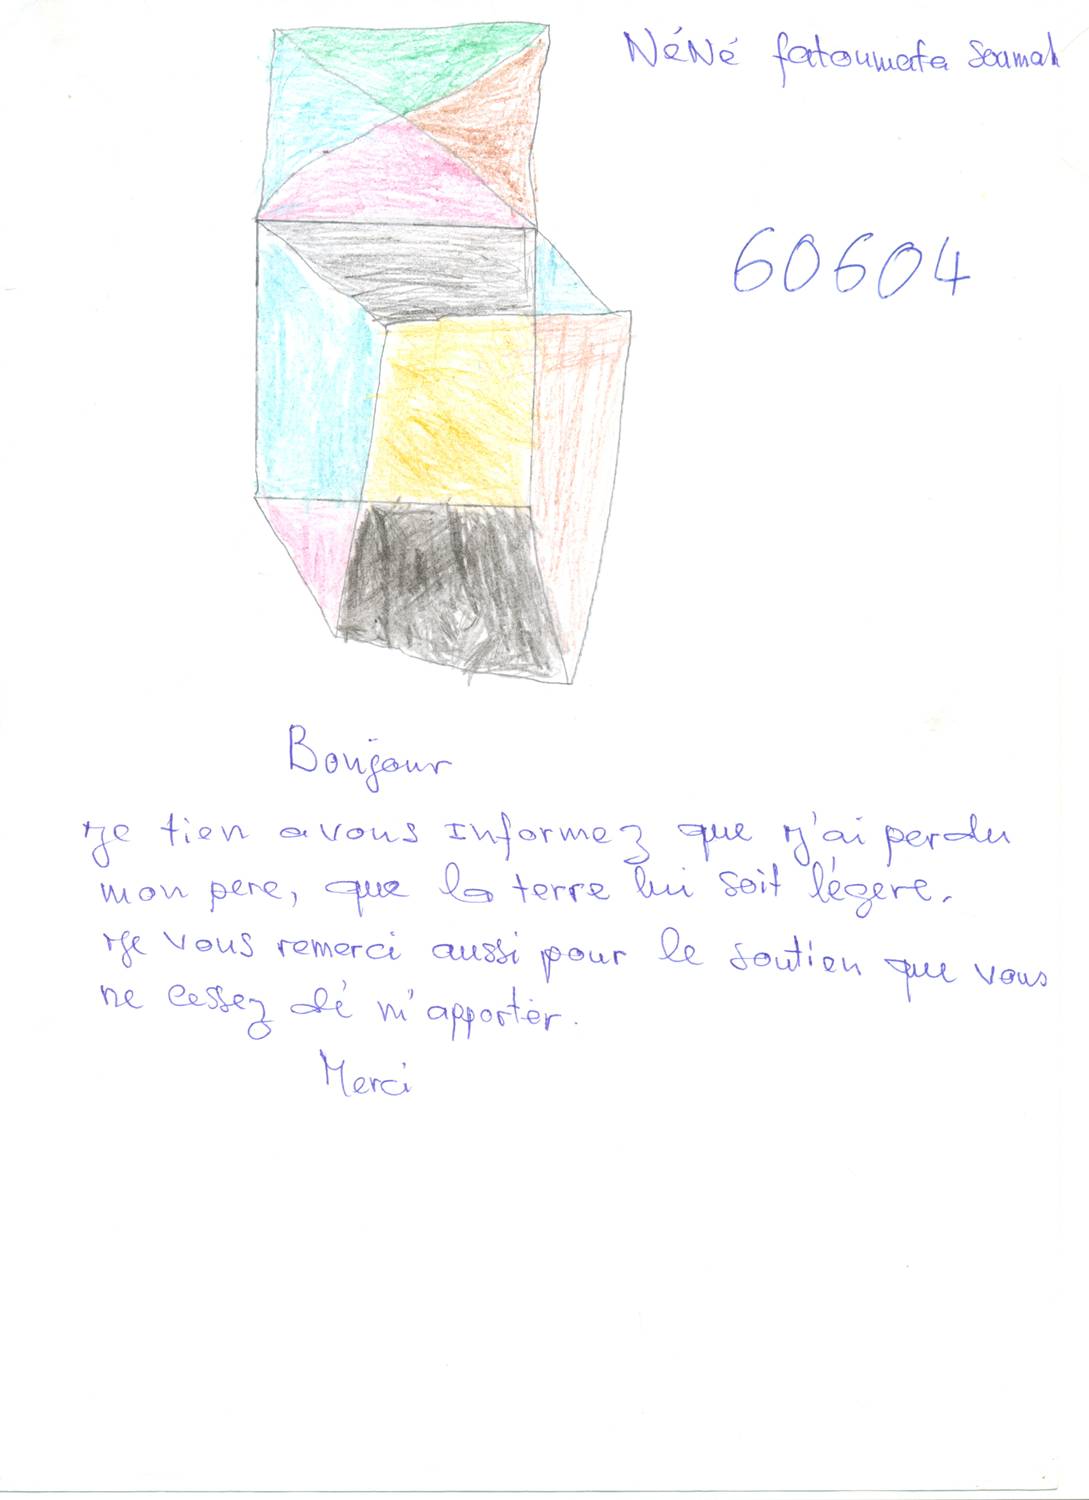 NéNé fatoumata Soumah
60604
Bonjour
Je tien a vous Informez que j'ai perdu
mon pere, que la terre lui soit légere.
Je vous remerci aussi pour le soutien que vous
ne cessez dé m'apporter.
Merci